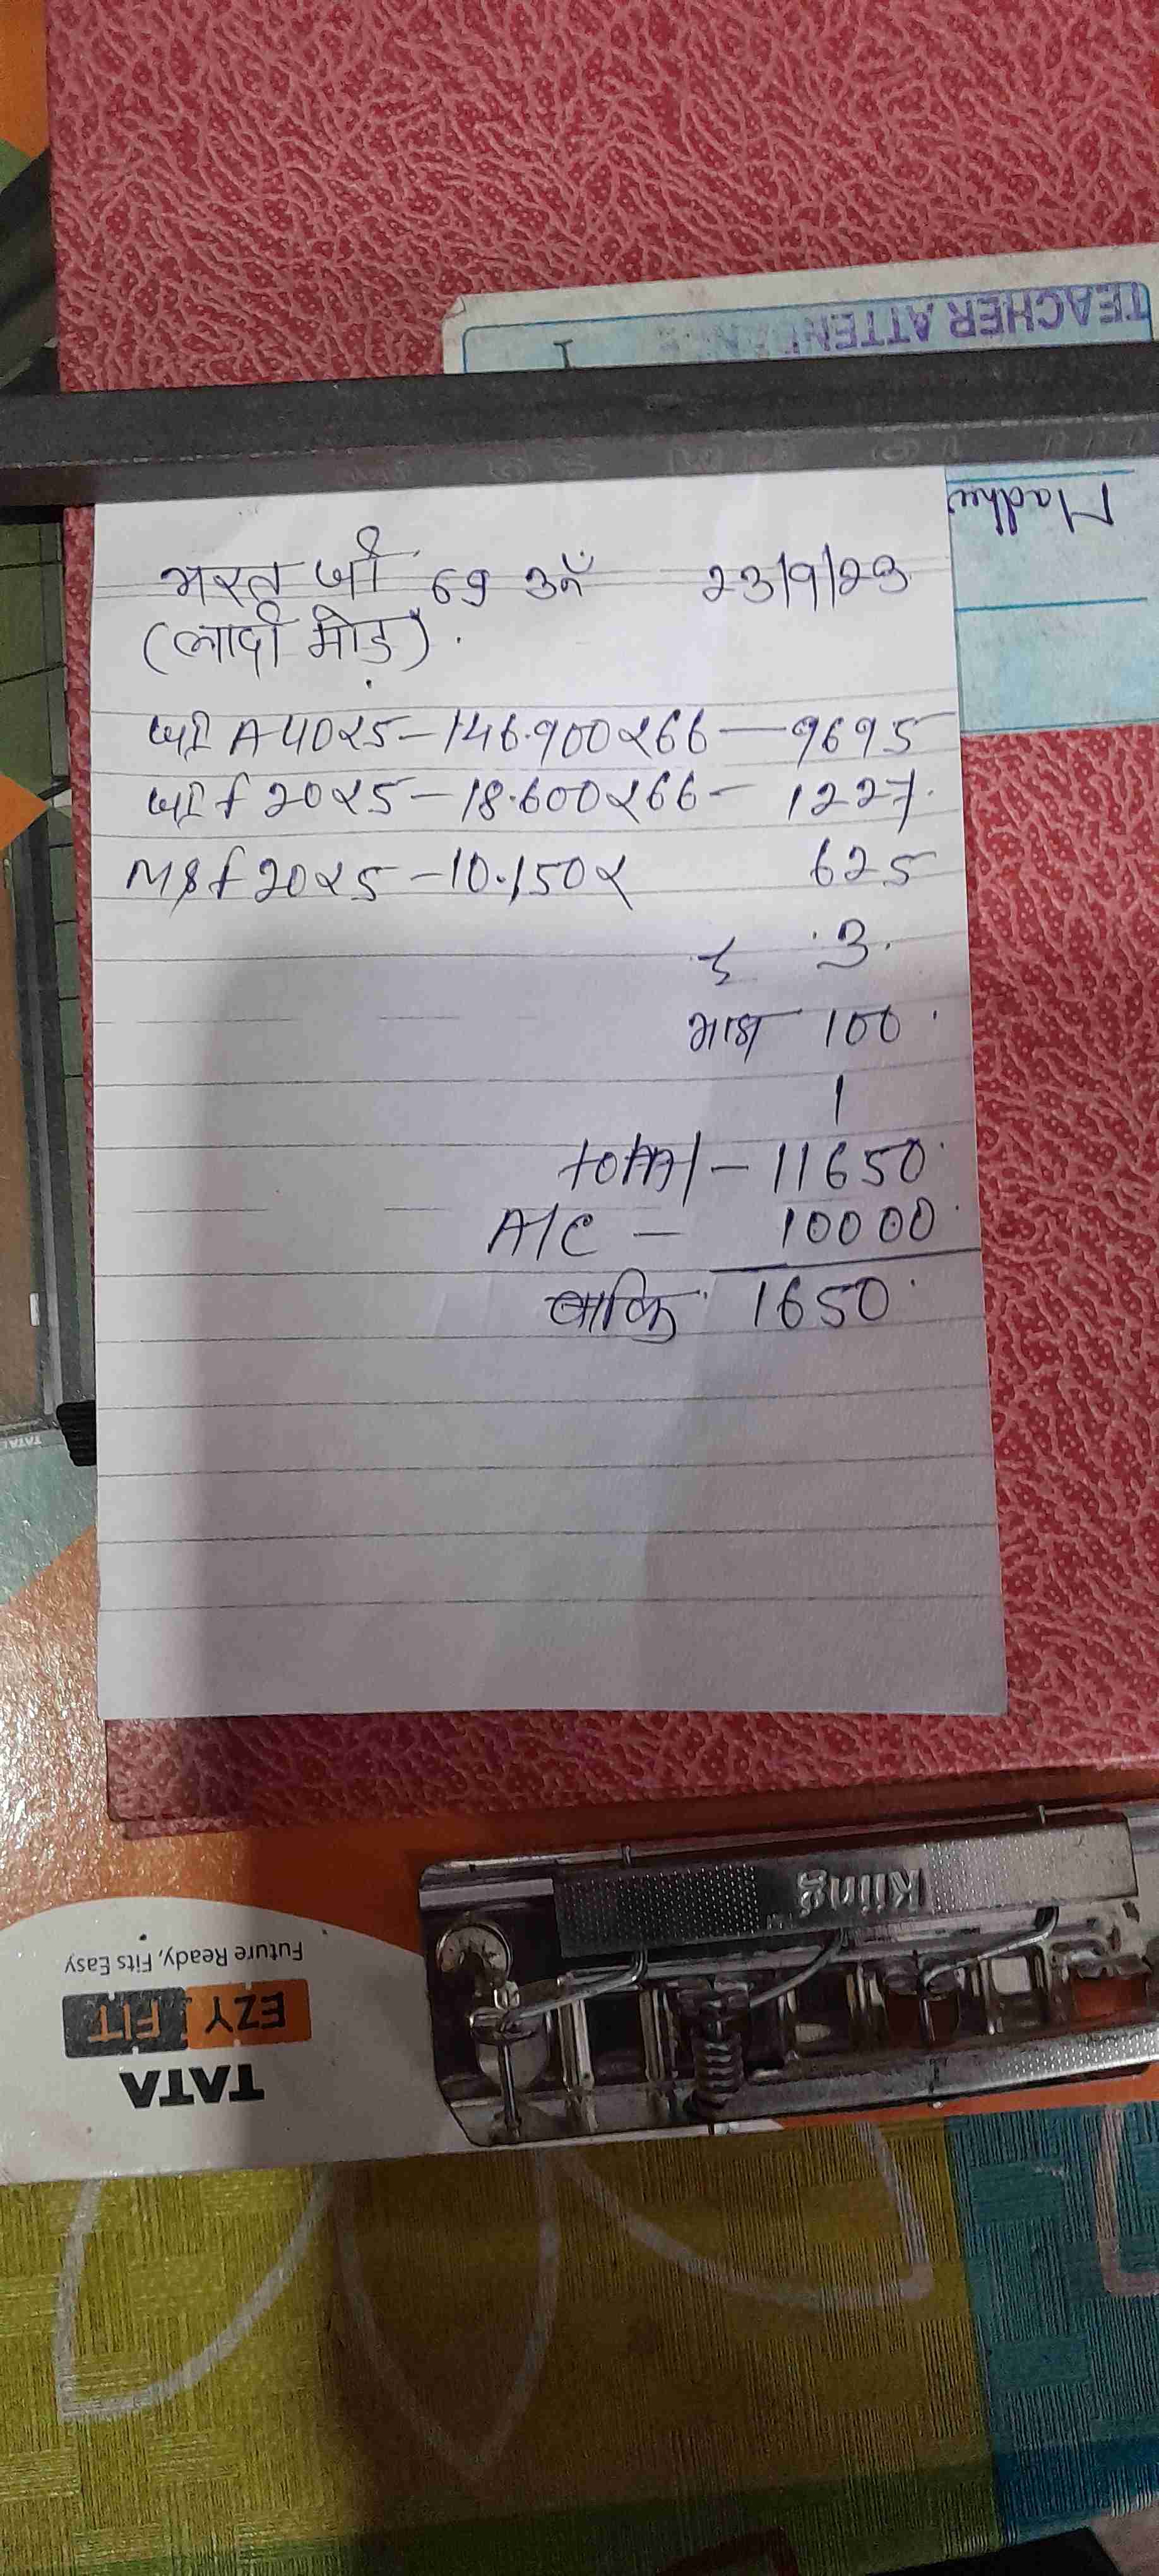 TEACHER ATTENDANCE
I
Madhu
भरत जी 69 ॐ 23/9/23
(लादी मोड़).
जी A 40x5 - 146.900x66 - 9695
जी f 20x5 - 18.600x66 - 1227.
MS f 20x5 - 10.150x 625
3.
भाडा 100
1
total - 11650
A/C - 10000
बाकि 1650
TATA
Kiing
Future Ready, Fits Easy
EZY FIT
TATA